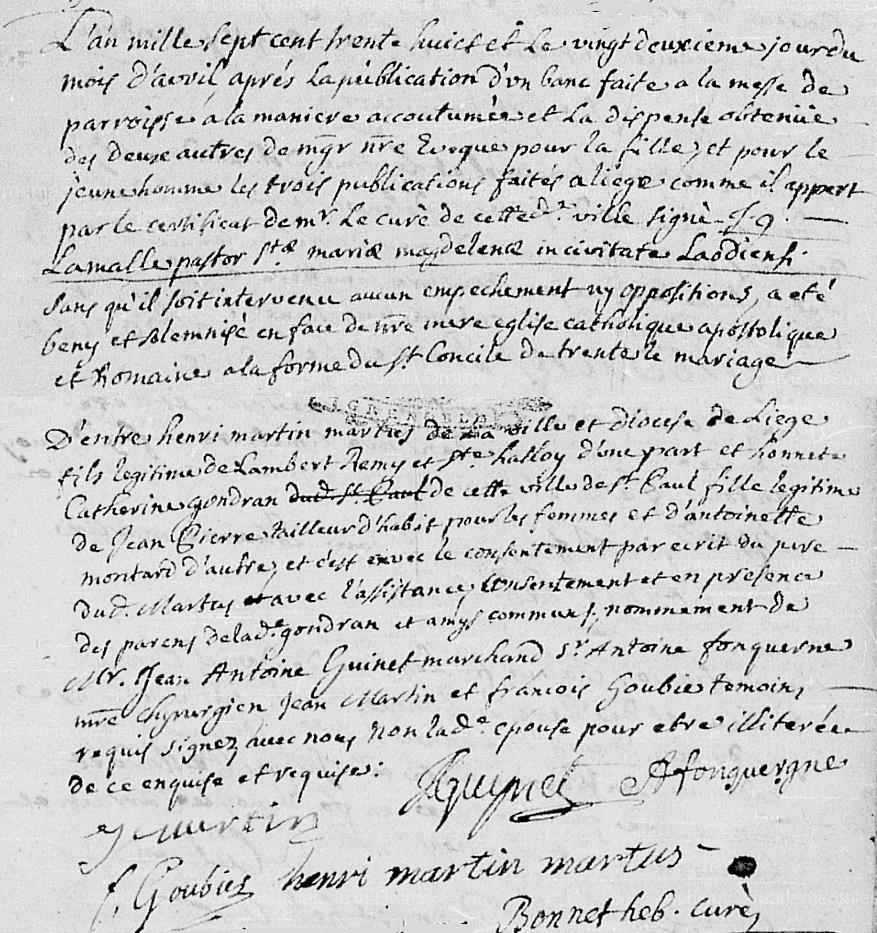 L'an mille sept cent trente huict et le vingt deuxieme jour du
mois d'avvil, aprés la publication d'vn banc faite a la messe de
parroisse á la maniere accoutumée et la dispense obtenüe
des deux autres de mgr nre Evoque pour la fille, et pour le
jeune homme les trois publications faites a liege comme il appert
par le certificat de mr. Le curé de cette de. ville signé J g.
Lamalle pastor Stæ mariæ magdelenæ in civitate Laodiensi.
sans qu'il soit intervenu aucun empechement ny oppositions, a eté
beny et solemnisé en face de nre mere eglise catholique apostolique
et Romaine a la forme du st. Concile de trente le mariage
D'entre henri martin martus de la ville et diocese de Liege
fils legitime de Lambert Remy et ste. halloy d'une part et honnete
Catherine gondran dud. St. Paul de cette ville de st. Paul fille legitime
de Jean Pierre tailleur d'habit pour les femmes et d'antoinette
montard d'autre, et c'est avec le consentement par ecrit du pere
dud. Martus et avec l'assistance, consentement et en presence
des parens de lade. gondran et amys communs, nommement de
Mr. Jean Antoine Guinet marchand sr. Antoine fonquerne
mre chyrurgien Jean Martin et francois Goubie temoins
requis signez avec nous non lade. epouse pour etre illiterée
de ce enquise et requise:
JAguynet Affonquergne
J martin
f. Goubies henri martin martus
Bonnet heb. curé